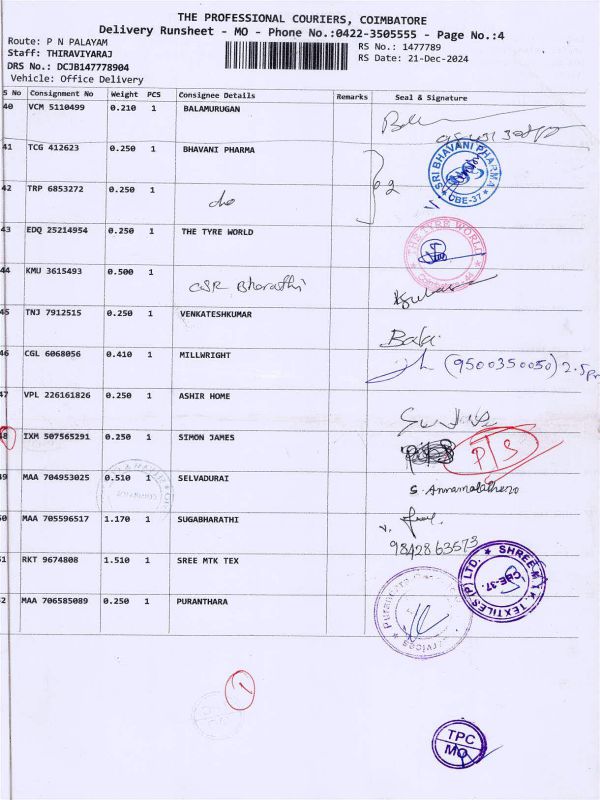 THE PROFESSIONAL COURIERS, COIMBATORE
Delivery Runsheet - MO - Phone No.:0422-3505555 - Page No.:4
Route: P N PALAYAM
Staff: THIRAVIYARAJ
RS No.: 1477789
DRS No.: DCJB147778904
RS Date: 21-Dec-2024
Vehicle: Office Delivery
S No Consignment No Weight PCS Consignee Details Remarks Seal & Signature
40 VCM 5110499 0.210 1 BALAMURUGAN
41 TCG 412623 0.250 1 BHAVANI PHARMA
SRI BHAVANI PHARMA
CBE-37
42 TRP 6853272 0.250 1 do
43 EDQ 25214954 0.250 1 THE TYRE WORLD
THE TYRE WORLD
44 KMU 3615493 0.500 1 CSR Bharathi
45 TNJ 7912515 1 0.250 VENKATESHKUMAR Bala
46 CGL 6068056 0.410 1 MILLWRIGHT (9500350050)
47 VPL 226161826 0.250 1 ASHIR HOME
48 IXM 507565291 0.250 1 SIMON JAMES P/S
49 MAA 704953025 0.510 1 SELVADURAI
50 MAA 705596517 1.170 1 SUGABHARATHI
9842863573
51 RKT 9674808 1.510 1 SREE MTK TEX
SHREE M.T.K. TEXTILES (P) LTD.
CBE-37.
52 MAA 706585089 0.250 1 PURANTHARA
1
TPC
MO